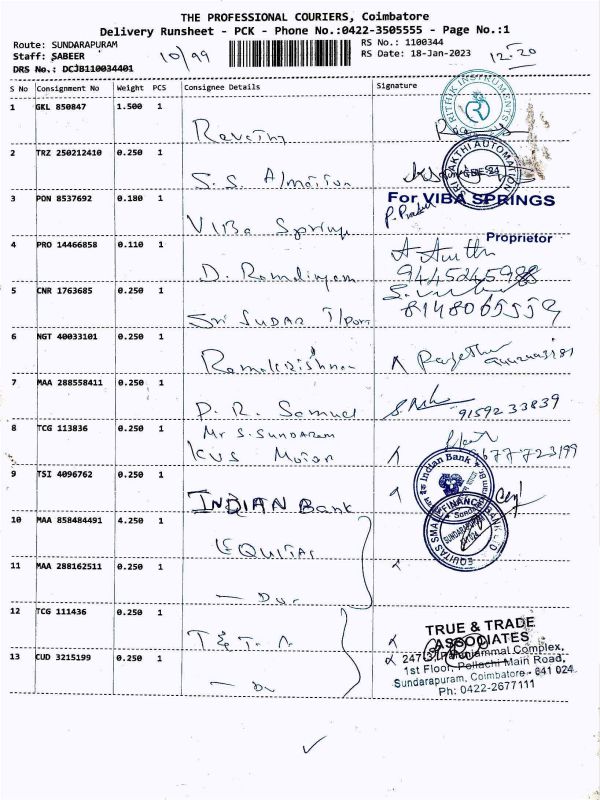 THE PROFESSIONAL COURIERS, Coimbatore
Delivery Runsheet - PCK - Phone No.:0422-3505555 - Page No.:1
Route: SUNDARAPURAM
RS No.: 1100344
Staff: SABEER
10/99
RS Date: 18-Jan-2023
12.20
DRS No.: DCJB110034401
S No Consignment No Weight PCS Consignee Details Signature
1 GKL 850847 1.500 1
RITHIK INSTRUMENTS
Revathy
2 TRZ 250212410 0.250 1
SRI SAKTHI AUTOMATION
S.S. Almation
3 PON 8537692 0.180 1
For VIBA SPRINGS
VIBa Springs
Proprietor
4 PRO 14466858 0.110 1
9445245988
5 CNR 1763685 0.250 1
8148065559
Sri SUDAR T/port
6 NGT 40033101 0.250 1
Ramakrishnan
7 MAA 288558411 0.250 1
9159233839
P. R. Samuel
8 TCG 113836 0.250 1
Mr S. SUNDARAM
KVS Motor
9 TSI 4096762 0.250 1
Indian Bank
INDIAN Bank
10 MAA 858484491 4.250 1
EQUITAS SMALL FINANCE BANK LTD
EQUITAS
11 MAA 288162511 0.250 1
12 TCG 111436 0.250 1
TRUE & TRADE
ASSOCIATES
T & T. A
13 CUD 3215199 0.250 1
1st Floor, Pollachi Main Road,
Sundarapuram, Coimbatore - 641 024
Ph: 0422-2677111